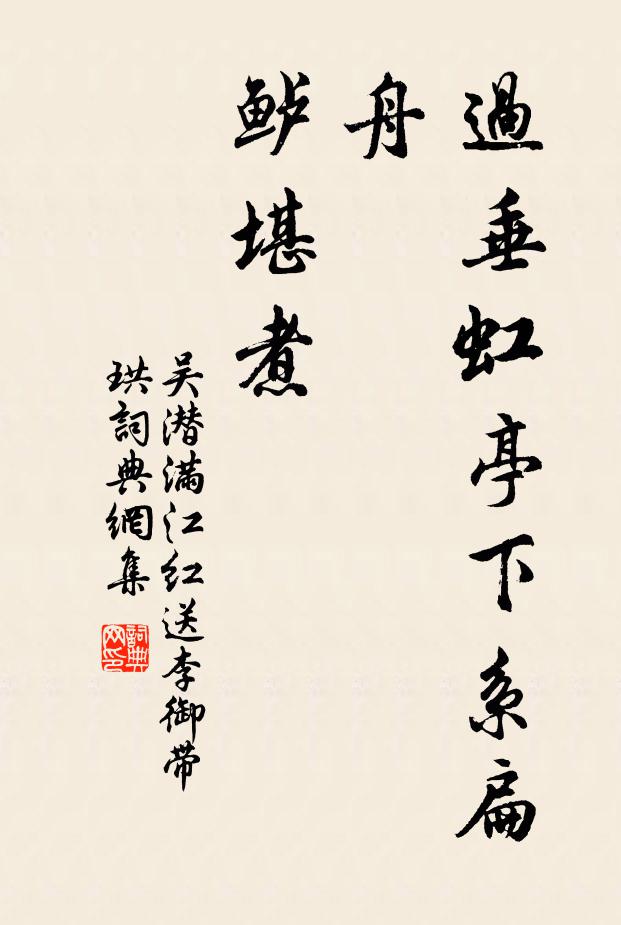 過垂虹亭下系扁
舟
鲈堪煮
吴潜满江红送李御带
珙詞典網集
詞典
网印